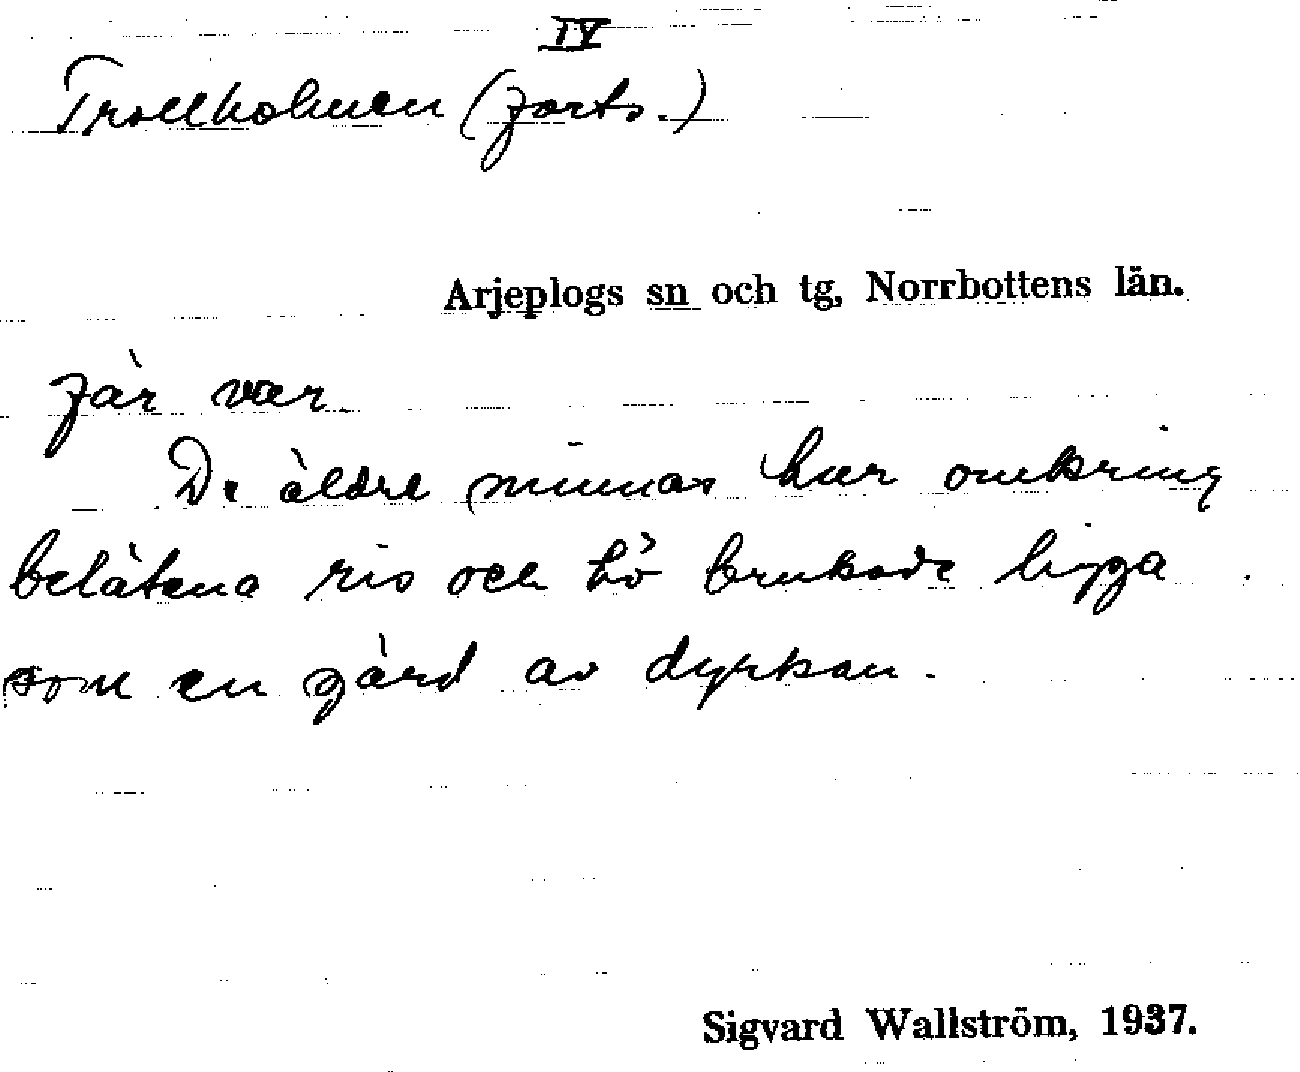 IV
Trollholmen (forts.)
Arjeplogs sn och tg, Norrbottens län.
får var
De äldre minnas hur omkring
belätena ris och hö brukade ligga
som en gärd av dyrkan.
Sigvard Wallström, 1937.